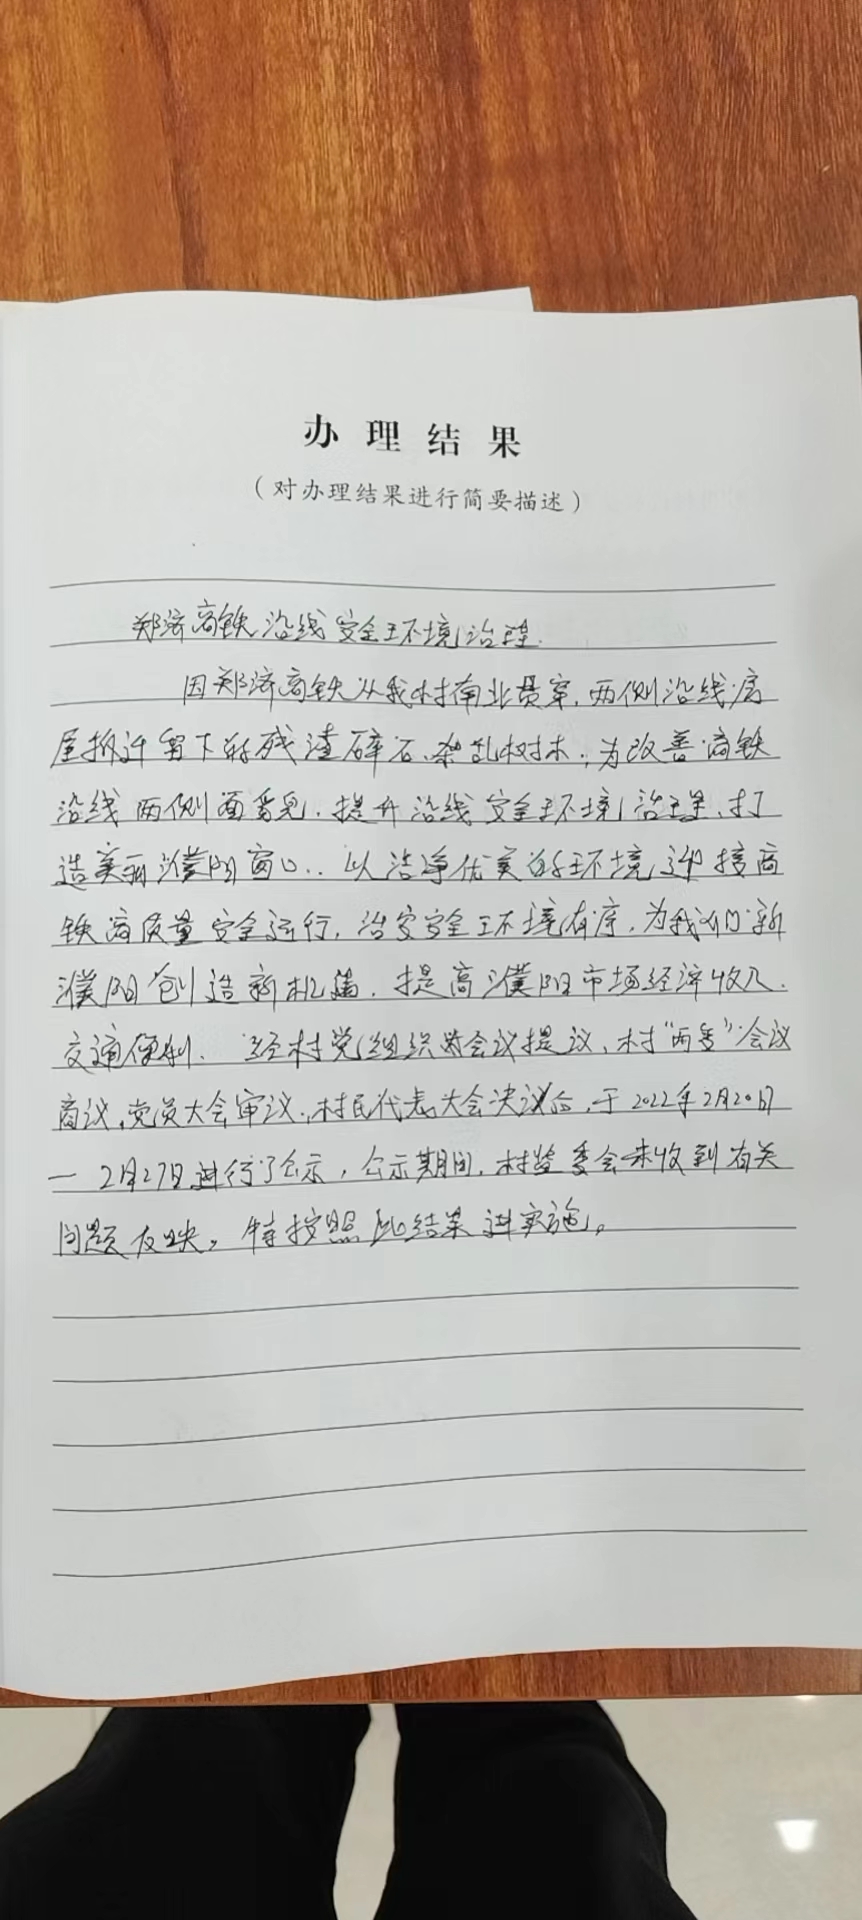 办理结果
（对办理结果进行简要描述）
郑济高铁沿线安全环境治理.
因郑济高铁从我村南北贯穿，两侧沿线房
屋拆迁留下的残渣碎石、杂乱树木；为改善高铁
沿线两侧面貌，提升沿线安全环境治理、打
造美丽濮阳窗口.. 以洁净优美的环境迎接高
铁高质量安全运行，治安安全环境有序，为我们新
濮阳创造新机遇，提高濮阳市场经济收入、
交通便利、 经村党组织会议提议、村“两委”会议
商议，党员大会审议、村民代表大会决议后，于2022年2月20日
一2月27日进行了公示，公示期间，村监委会未收到有关
问题反映。特按照此结果进实施。